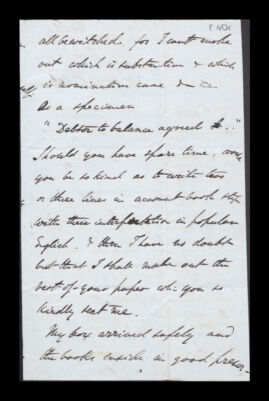 all bewitched, for I cant make
out which is substantive & which
is nominative case &
As a specimen
"Debtor to balance agreed to.."
Should you have spare time, would
you be so kind as to write two
or three lines in account book style
with their interpretation in popular
English. & then I have no doubt
but that I shall make out the
rest of your paper whi. you so
kindly sent me.
My box arrived safely and
the books inside in good preser-